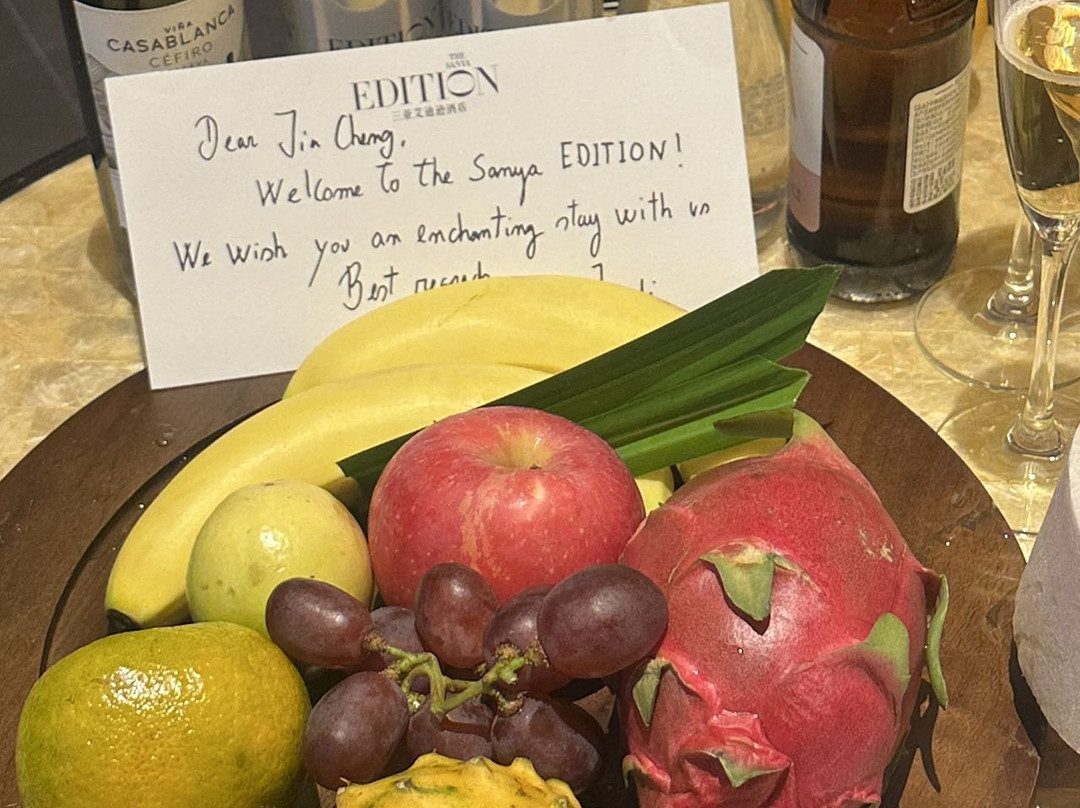 VIÑA
CASABLANCA
CÉFIRO
THE
SANYA
EDITION
三亚艾迪逊酒店
Dear Jin Cheng,
Welcome to the Sanya EDITION!
We wish you an enchanting stay with us
Best